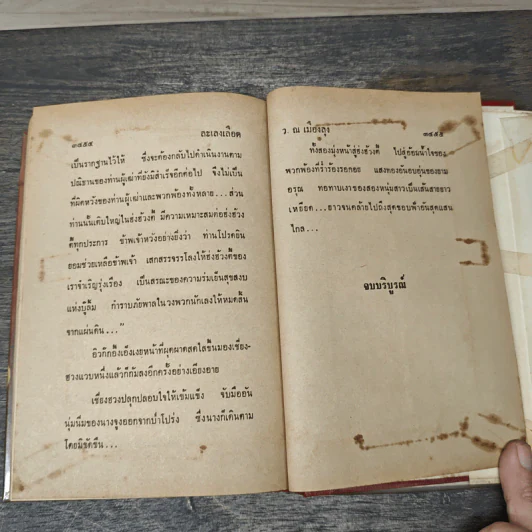 ๓๔๕๔ ละเลงเลือด
เป็นรากฐานไว้ให้ ซึ่งจะต้องกลับไปดำเนินงานตาม
ปณิธานของท่านผู้เฒ่าที่ยังมิสำเร็จอีกต่อไป จึงไม่เป็น
ที่ผิดหวังของท่านผู้เฒ่าและพวกพ้องทั้งหลาย...ส่วน
ท่านนั้นเติบใหญ่ในฮ่งฮ้วงตี้ มีความเหมาะสมต่อฮ่งฮ้วง
ตี้ทุกประการ ข้าพเจ้าหวังอย่างยิ่งว่า ท่านโปรดยิน
ยอมช่วยเหลือข้าพเจ้า เสกสรรจรรโลงให้ฮ่งฮ้วงตี้ของ
เราจำเริญรุ่งเรือง เป็นสรณะของความร่มเย็นสุขสงบ
แห่งบู๊ลิ้ม กำราบภัยพาลในวงพวกนักเลงให้หมดสิ้น
จากแผ่นดิน..."
อิวกักอี้งเงยหน้าที่ผุดผาดสดใสขึ้นมองเซียง-
ฮวงแวบหนึ่งแล้วก็ก้มลงอีกครั้งอย่างเอียงอาย
เซียงฮวงปลุกปลอบใจให้เข้มแข็ง จับมืออัน
นุ่มนิ่มของนางจูงออกจากป่าโปร่ง ซึ่งนางก็เดินตาม
โดยมิขัดขืน...
ว. ณ เมืองลุง ๓๔๕๕
ทั้งสองมุ่งหน้าสู่ฮ่งฮ้วงตี้ ไปสู่อ้อมน้ำใจของ
พวกพ้องที่รำร้องรอคอย แสงทองอันอบอุ่นของยาม
อรุณ ทอทาบเงาของสองหนุ่มสาวเป็นเส้นสายยาว
เหยียด...ยาวจนคล้ายไปถึงสุดขอบฟ้าอันสุดแสน
ไกล...
จบบริบูรณ์